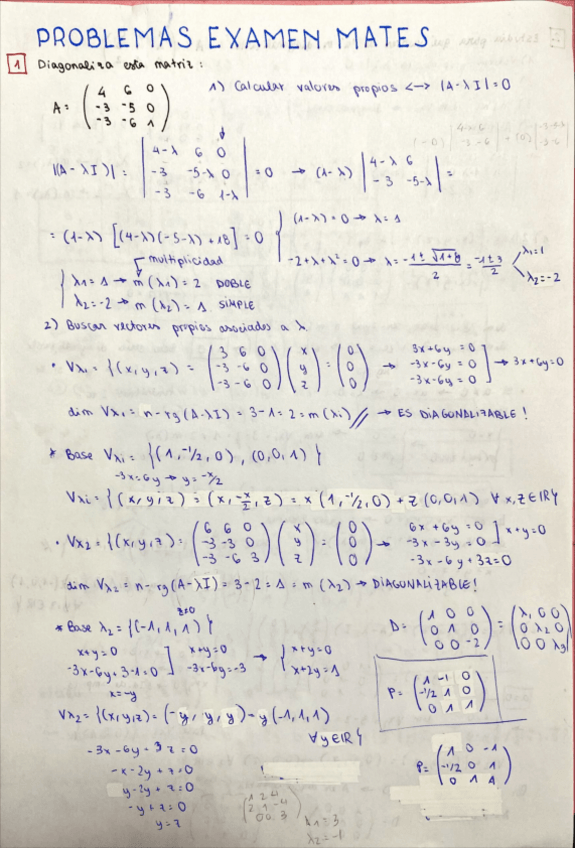 PROBLEMAS EXAMEN MATES
1 Diagonaliza esta matriz:
A = ( 4 6 0 / -3 -5 0 / -3 -6 1 )
1) Calcular valores propios <-> |A-λI|=0
|(A-λI)| = | 4-λ 6 0 / -3 -5-λ 0 / -3 -6 1-λ | = 0 → (1-λ) | 4-λ 6 / -3 -5-λ | =
= (1-λ) [(4-λ)(-5-λ)+18] = 0 { (1-λ)=0 → λ=1
-2+λ+λ²=0 → λ = (-1±√1+8)/2 = (-1±3)/2 < λ1=1 / λ2=-2
multiplicidad
{ λ1=1 → m(λ1)=2 DOBLE
λ2=-2 → m(λ2)=1 SIMPLE
2) Buscar vectores propios asociados a λ
· Vλ1 = {(x,y,z) = ( 3 6 0 / -3 -6 0 / -3 -6 0 ) ( x / y / z ) = ( 0 / 0 / 0 ) → 3x+6y=0 / -3x-6y=0 / -3x-6y=0 ] → 3x+6y=0
dim Vλ1 = n-rg(A-λI) = 3-1=2=m(λ1) // → ES DIAGONALIZABLE!
* Base Vλ1 = {(1,-1/2,0), (0,0,1)}
-3x=6y → y=-x/2
Vλ1 = {(x,y,z) = (x,-x/2,z) = x(1,-1/2,0)+z(0,0,1) ∀x,z∈IR}
· Vλ2 = {(x,y,z) = ( 6 6 0 / -3 -3 0 / -3 -6 3 ) ( x / y / z ) = ( 0 / 0 / 0 ) → 6x+6y=0 / -3x-3y=0 ] x+y=0 / -3x-6y+3z=0
dim Vλ2 = n-rg(A-λI) = 3-2=1=m(λ2) → DIAGONALIZABLE!
* Base λ2 = {(-1,1,1)}
x+y=0 / -3x-6y+3·1=0 ] x+y=0 / -3x-6y=-3 → { x+y=0 / x+2y=1
x=-y
D = ( 1 0 0 / 0 1 0 / 0 0 -2 ) = ( λ1 0 0 / 0 λ2 0 / 0 0 λ3 )
P = ( 1 -1 0 / -1/2 1 0 / 0 1 1 )
Vλ2 = {(x,y,z) = (-y,y,y) = y(-1,1,1)
∀y∈IR}
-3x-6y+3z=0
-x-2y+z=0
y-2y+z=0
-y+z=0
y=z
P = ( 1 0 -1 / -1/2 0 1 / 0 1 1 )